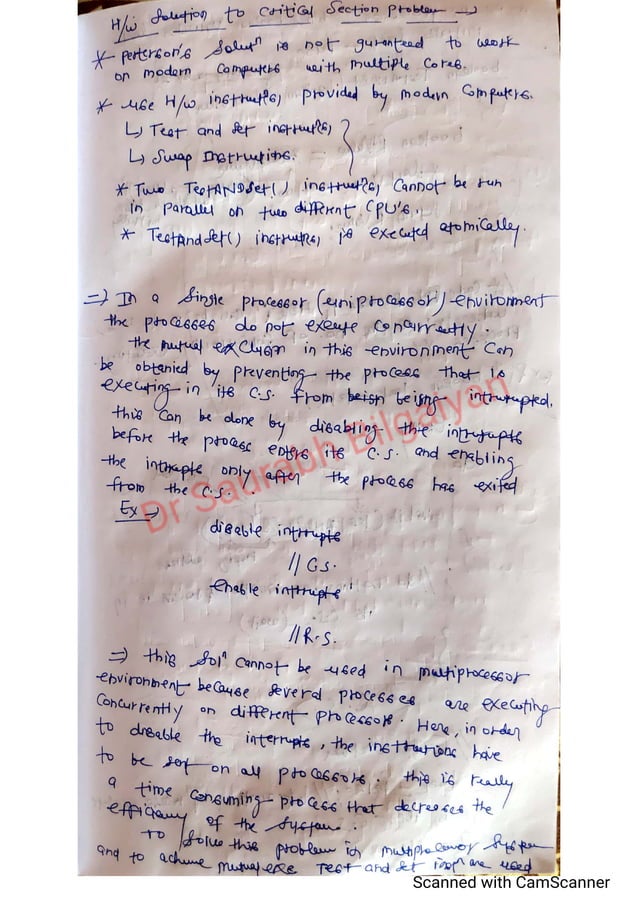 H/W Solution to Critical Section Problem →
* Perterson's Soluⁿ is not guranteed to work
on modern computers with multiple cores.
* Use H/W instructⁿs, provided by modern computers.
↳ Test and Set instructⁿs,
↳ Swap Instructions.
* Two TestANDSet() instructⁿs, Cannot be run
in parallel on two different CPU's.
* TestAndSet() instructⁿs, is executed atomically.
⇒ In a Single processor (uniprocessor) environment
the processes do not exeute concurrently.
the mutual exclusion in this environment Can
be obtanied by preventing the process that is
executing in its C.S. from beign beigng intrrupted.
this can be done by disabling the intrrupts
before the process enters its C.S. and enabling
the intrrupts only after the process has exited
from the C.S.
Ex ⇒
disable intrrupts
// C.S.
enable intrrupts
// R.S.
⇒ this Solⁿ cannot be used in multiprocessor
environment because several processes are executing
Concurrently on different processors. Here, in order
to disable the interrupts, the instructions have
to be sent on all processors. this is really
a time consuming process that decreases the
efficiency of the System.
To Solve this problem in multiprocessor System
and to achieve mutual exc Test and Set insⁿ are used
Dr Saurabh Bilgaiyan
Scanned with CamScanner